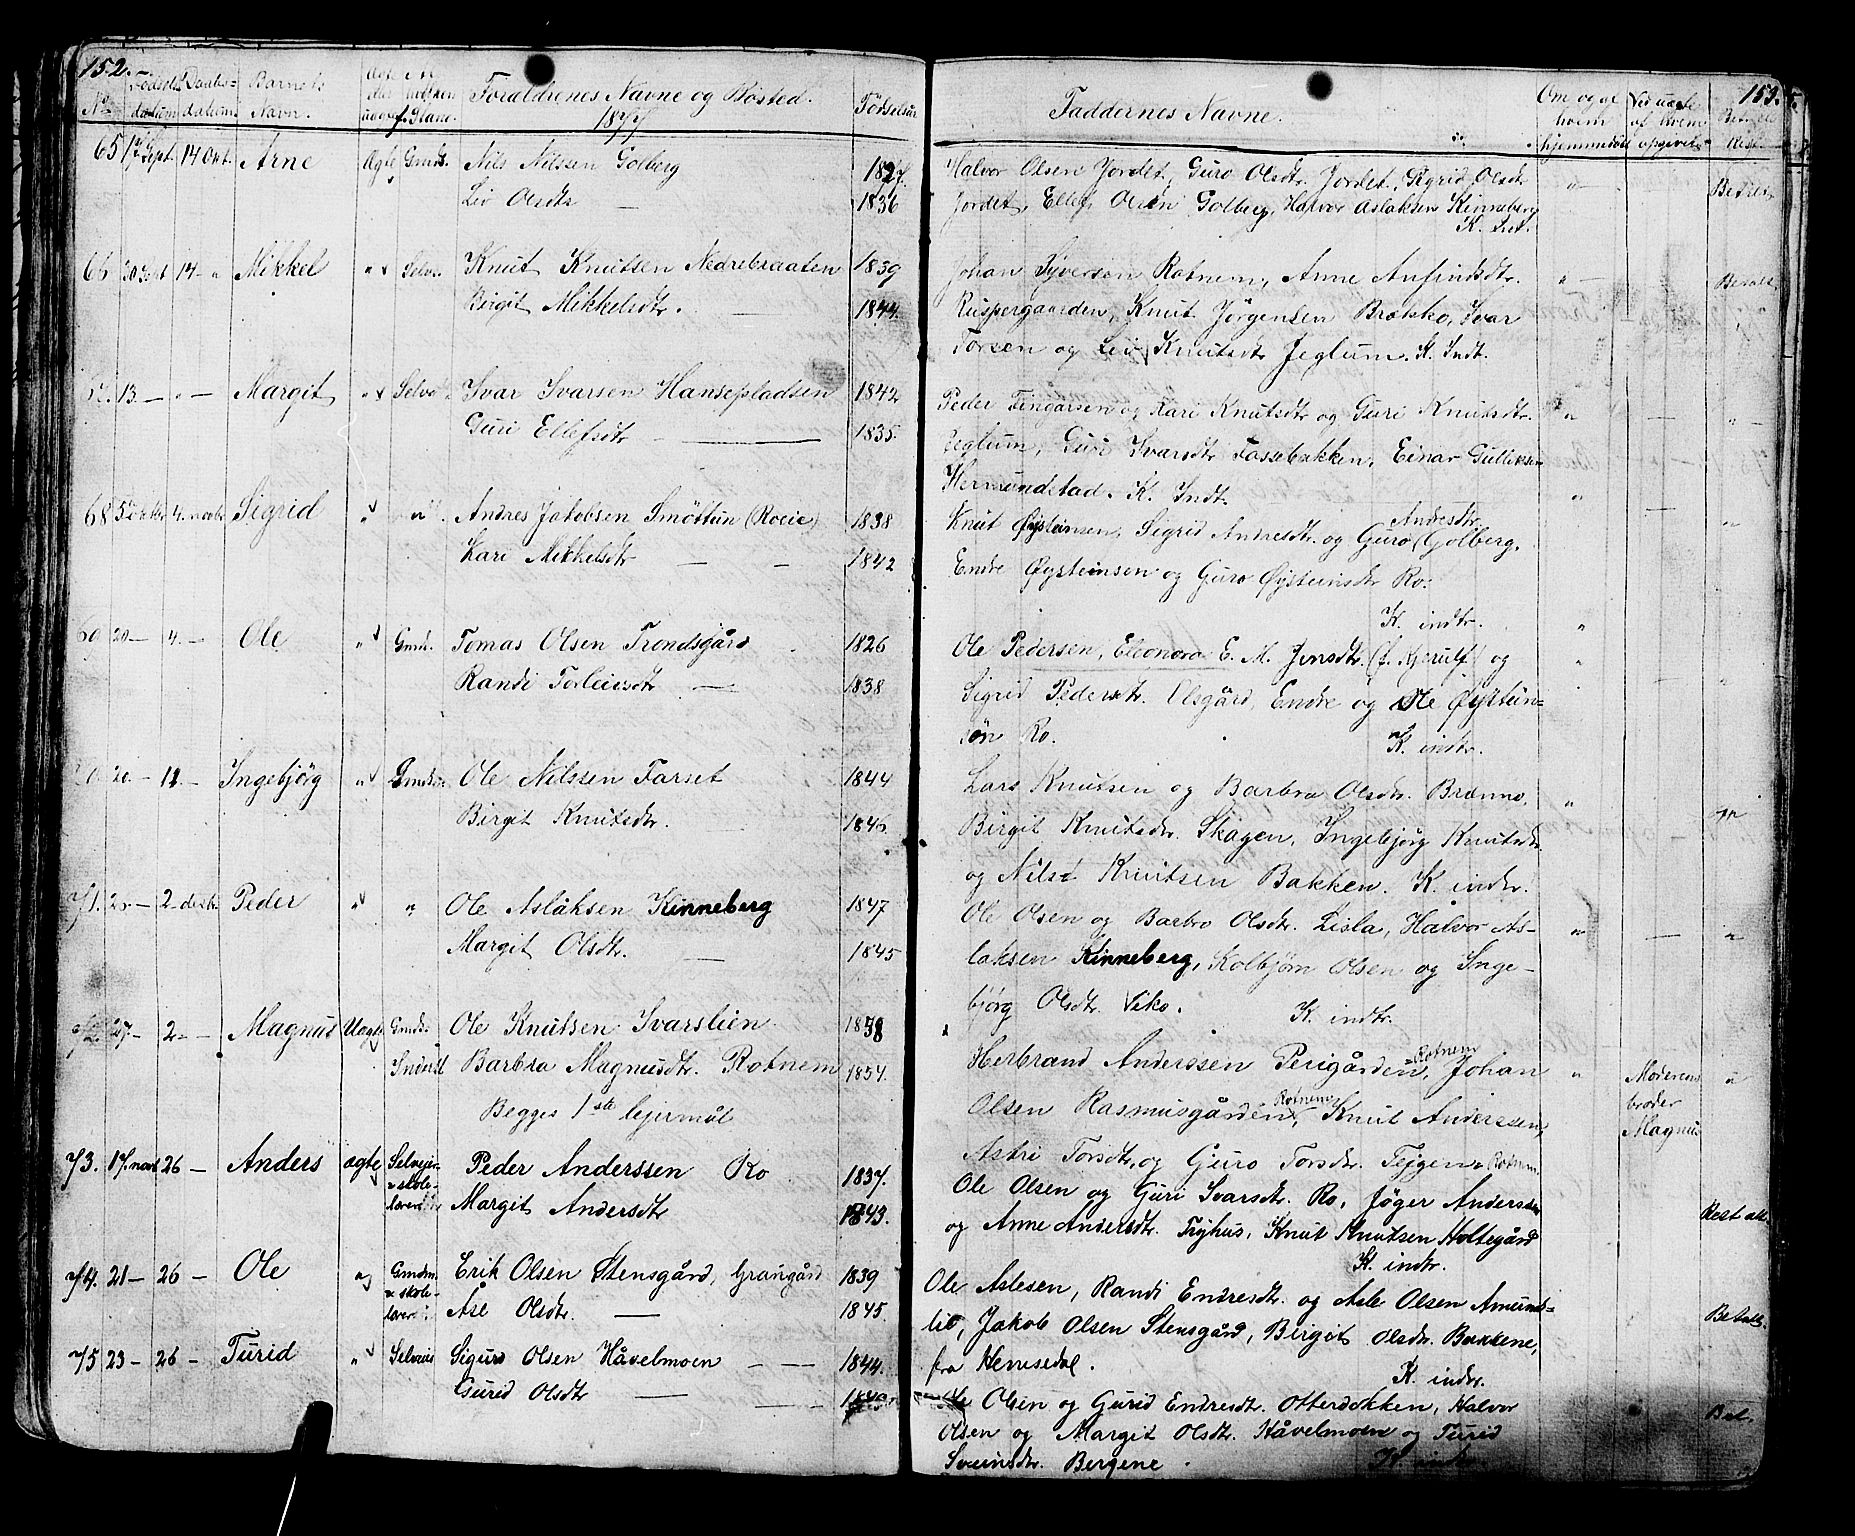 152.
No Fødsels datum Daabs- datum Barnets Navn. Ægte eller uægte f. Forældrenes Navne og Bosted. Fødselsår
1877
65 Sept. 14 Okt. Arne Ægte Gmds. Nils Nilssen Golberg 1827.
Liv Olsdtr — 1836
66 30 Sept 14 - " Mikkel " Selv. Knut Knutsen Nedrebraaten 1839
Birgit Mikkelsdtr. — 1844.
13. — " — Margit " Selve Ivar Ivarsen Hansepladsen 1842
Guri Ellefsdtr — 1835.
68 5 oktbr 4. novbr Sigrid " " Andres Jakobsen Smøttun (Rocie) 1838
Kari Mikkelsdtr — — 1842
69 20 — 4. — Ole " Gmds. Tomas Olsen Trondsgård 1826
Randi Torleivsdtr — 1838
20 — 11 — Ingebjörg " Gmds. Ole Nilssen Farset 1844
Birgit Knutsdtr. — 1846.
71. — 2 desbr Peder " " Ole Aslaksen Kinneberg 1847
Margit Olsdtr. — 1845
72. 27 — 2 — Magnus Uægte Gmds. Ole Knutsen Ivarslien 1858
Inderst Barbra Magnusdtr. Rotnem 1854.
Begges 1ste lejermål
73. 17. novbr 26 — Anders ægte Selvejer & skole- lærer Peder Anderssen Ro 1837.
Margit Andersdtr 1843.
74. 21 — 26 — Ole " Gmdm. & skole- lærer Erik Olsen Stensgård, Grangård 1839
Åse Olsdtr. — 1845.
75 23 — 26 — Turid " Selveie Sigurd Olsen Håvelmoen — — 1844.
Gurid Olsdtr —
153.
Faddernes Navne. Om og af hvem hjemmedöbt Ved uægte af hvem opgivet
Halvor Olsen Jordet, Guro Olsdtr. Jordet, Sigrid Olsdtr " Betalt.
Jordet, Ellef Olsen Golberg, Halvor Aslaksen Kinneberg
K. Int.
Johan Syversen Rotnem, Anne Anfindsdtr. " Betalt
Ruspergaarden, Knut Jørgensen Brækko, Ivar
Torsen og Liv Knutsdtr Jeglum. K. Indt.
Peder Fingarsen og Kari Knutsdtr og Guri Knutsdtr. " — "
Jeglum, Guri Ivarsdtr Fossebakken, Einar Gulliksen
Hermundstad. K. Indt. "
Knut Øysteinsen, Sigrid Andresdtr. og Guro Andresdtr. Golberg, — "
Endre Øysteinsen og Guro Øysteinsdtr Ro.
K. indtr. "
Ole Pedersen, Eleonora E. M. Jensdtr. (f. Kjerulf) og " — "
Sigrid Pedersdtr. Olsgård, Endre og Ole Øystein-
søn Ro. K. indtr.
Lars Knutsen og Barbra Olsdtr. Brænno, " —
Birgit Knutsdtr. Skagen, Ingebjörg Knutsdtr
og Nils Knutsen Bakken. K. indtr.
Ole Olsen og Barbro Olsdtr. Lisla, Halvor As- " — "
laksen Kinneberg, Kolbjørn Olsen og Inge-
björg Olsdtr Viko. K. indtr.
Herbrand Anderssen Perigården, Rotnem Johan " Moderens broder Magnus "
Olsen Rasmusgården, Rotnem Knut Anderssen,
Astri Torsdtr. og Guro Torsdtr. Tejgen Rotnem.
Ole Olsen og Guri Ivarsdtr. Ro, Jøger Anderssen
og Anne Andersdtr. Tryhus, Knut Knutsen Holtegård
K. indtr.
Ole Aslesen, Randi Endresdtr. og Asle Olsen Amunds- Betalt.
lid, Jakob Olsen Stensgård, Birgit Olsdtr. Bakkene,
fra Hemsedal. K. indtr.
Ole Olsen og Gurid Endresdtr. Otterdokken, Halvor Bet.
Olsen og Margit Olsdtr. Håvelmoen og Turid
Sveinsdtr. Bergene.